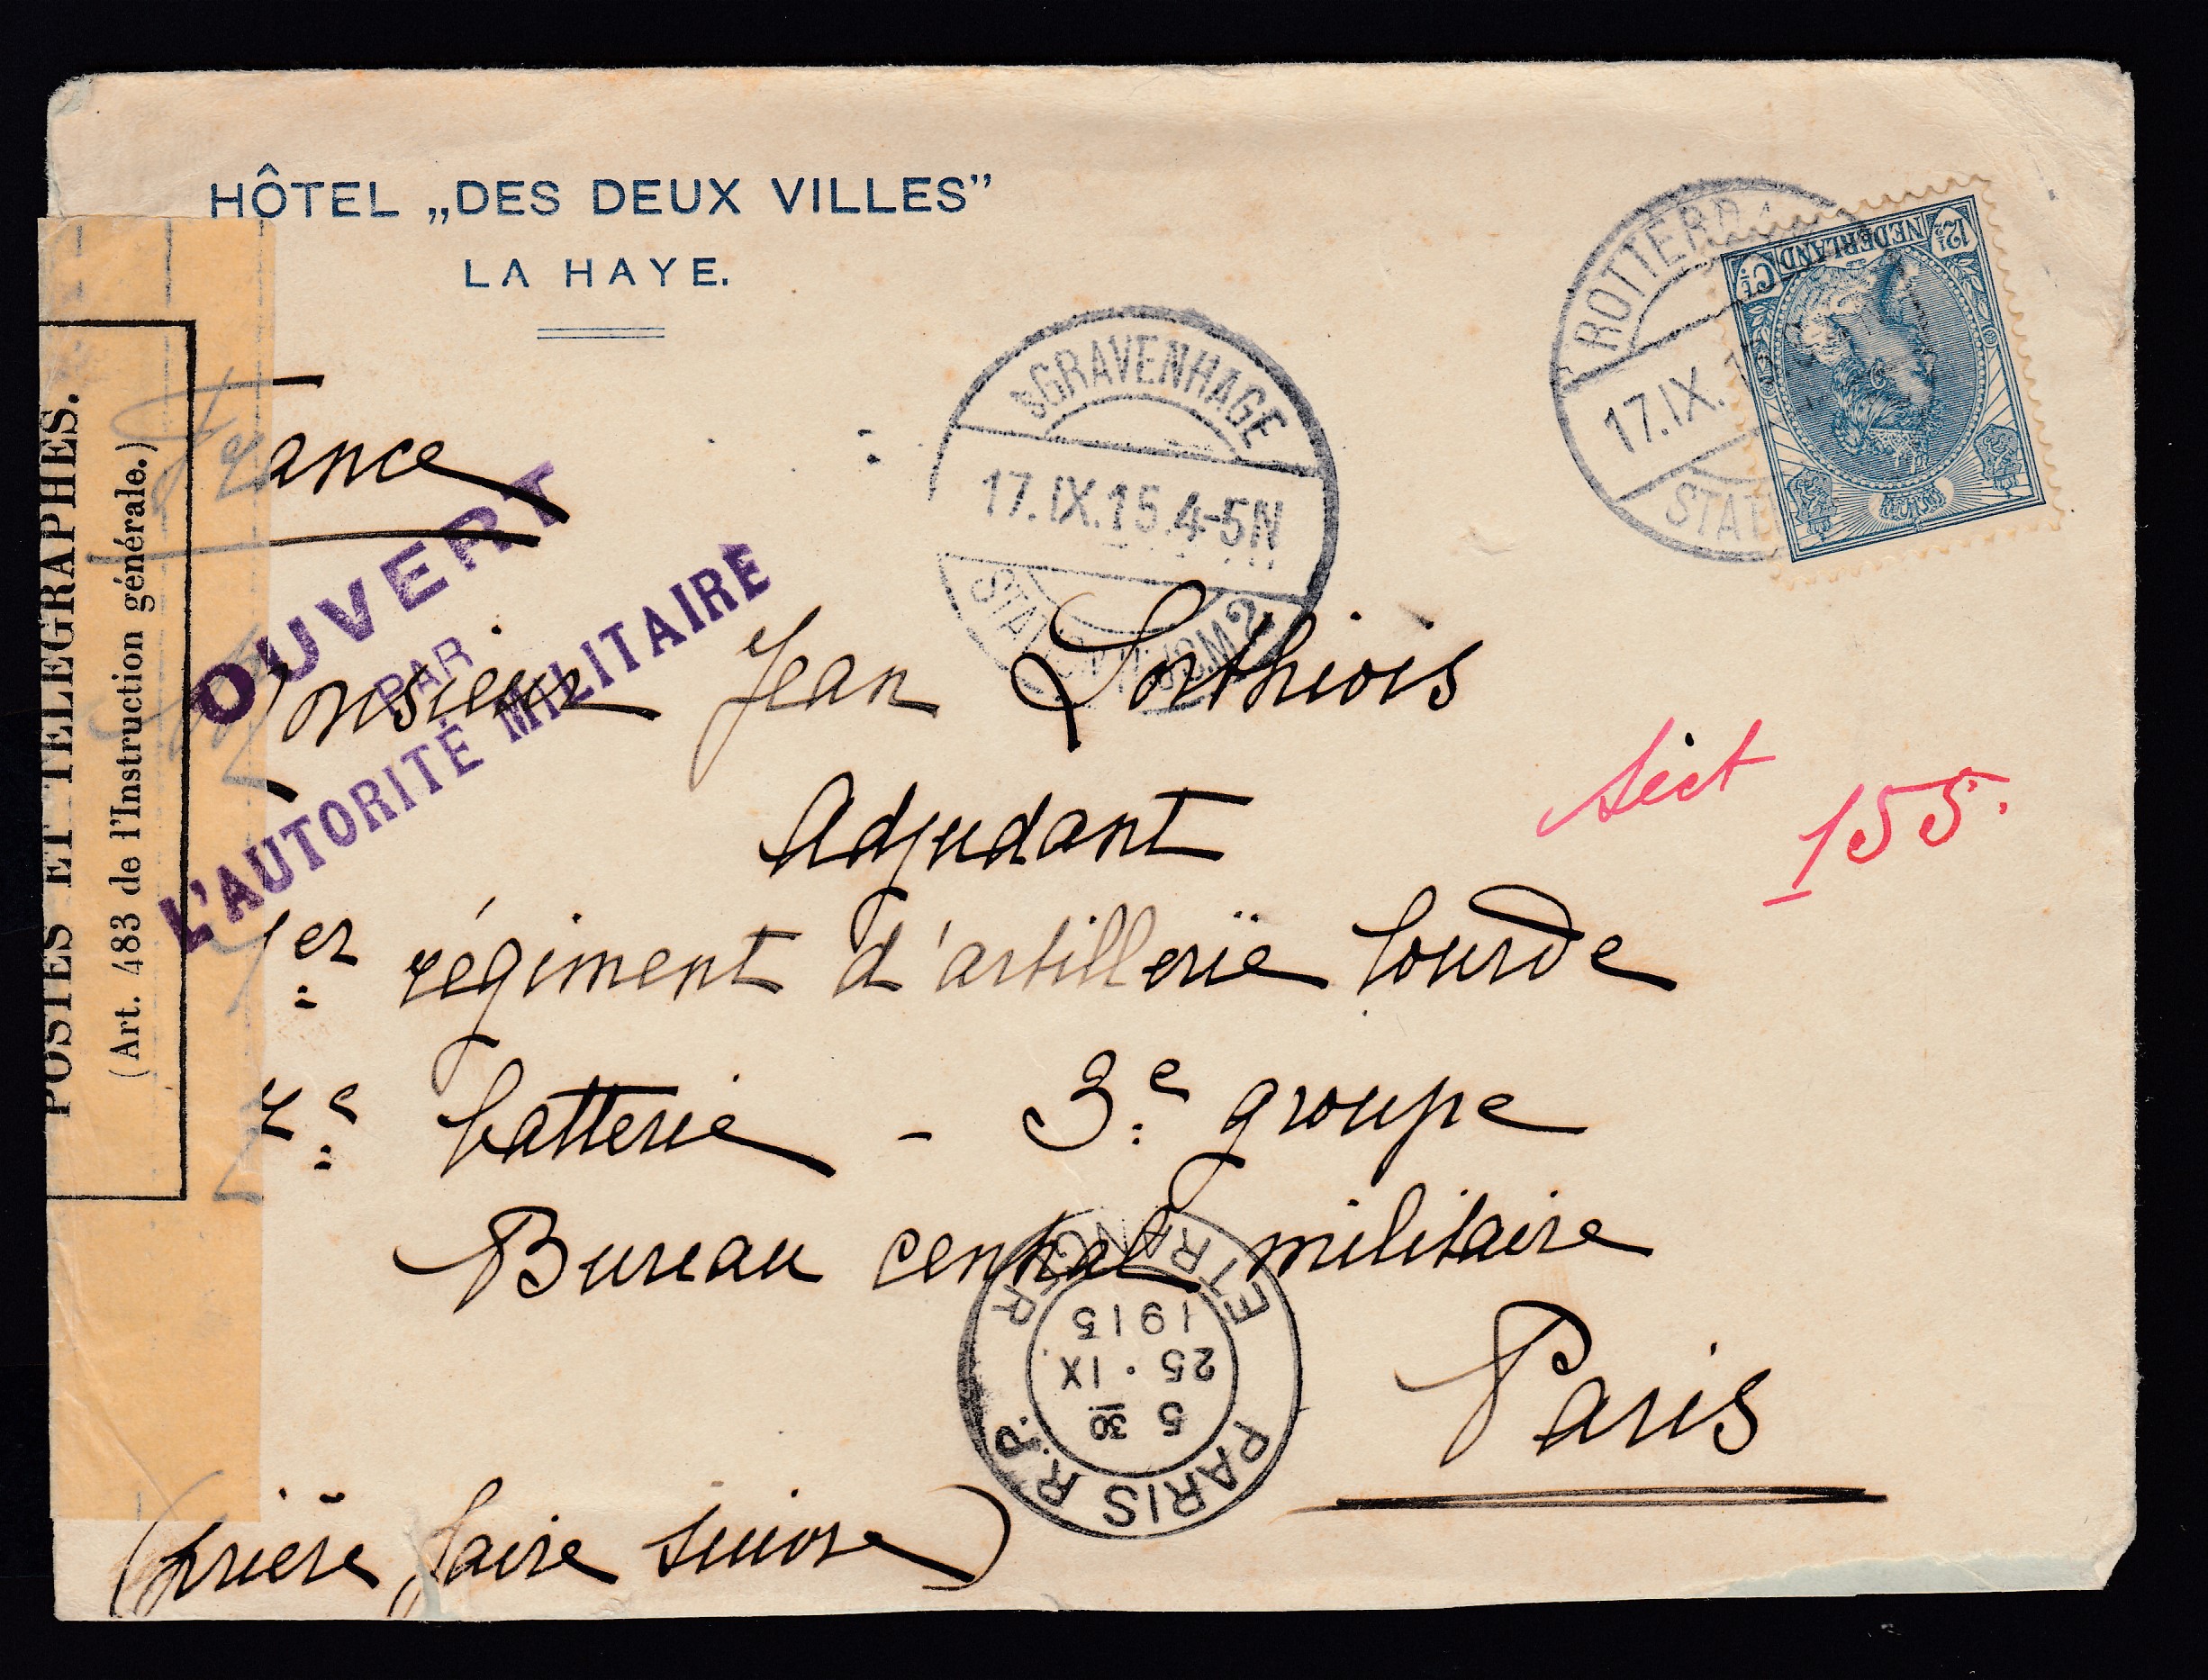 HÔTEL „DES DEUX VILLES”
LA HAYE.
POSTES ET TELEGRAPHES.
(Art. 483 de l'Instruction générale.)
France
OUVERT
PAR
L'AUTORITÉ MILITAIRE
sGRAVENHAGE
17.IX.15.4-5N
2
ROTTERDA
17.IX.1
STAT
NEDERLAND
12½ Ct
Monsieur Jean Lorthiois
Adjudant
sect
155.
1er régiment d'artillerie lourde
batterie - 3e groupe
Bureau central militaire
Paris
ETRANGER
1915
25 · IX
5 30
PARIS R.P.
(prière faire suivre)